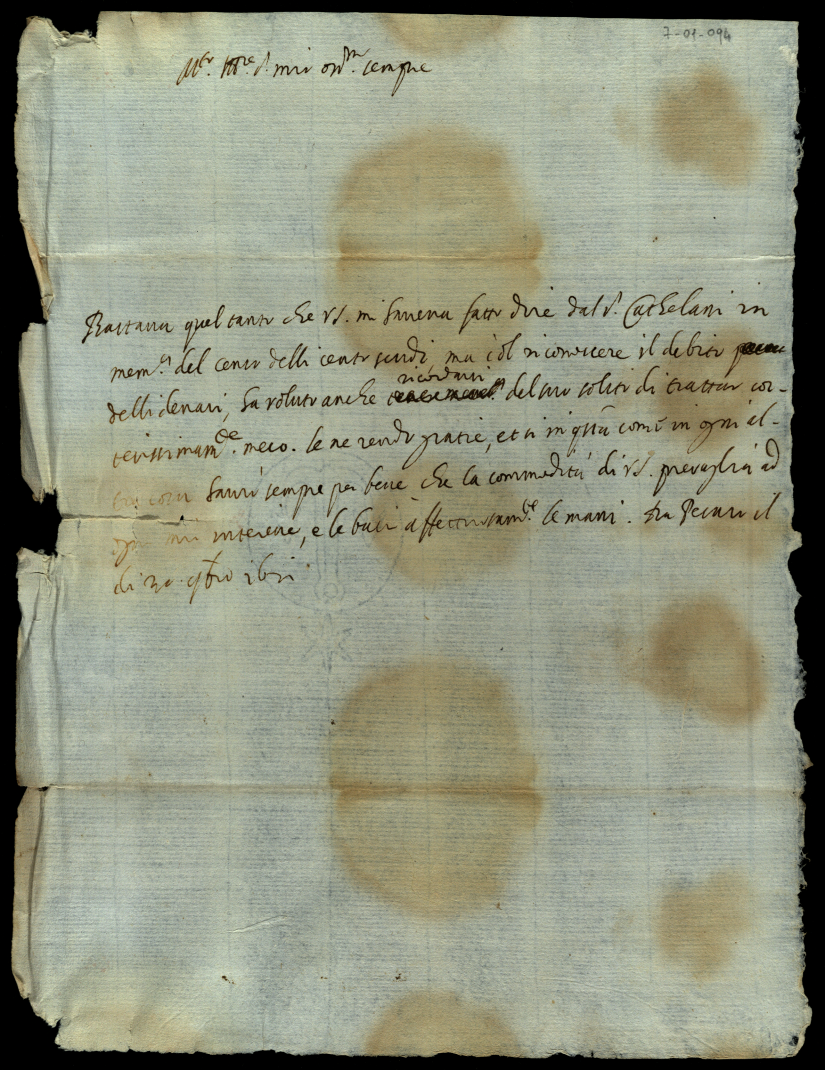 7-01-094
M.er Ill.re S. mio oss.mo sempre
Bastava quel tanto che V.S. mi haveva fatto dire dal S. Cathelani in
mem.a del censo delli cento scudi, ma col riconoscere il debito
delli denari, ha voluto anche ricordarsi del suo solito di trattar cor-
tesissimam.te meco. le ne rendo gratie, et sì in q.sta come in ogni al-
tra cosa havrò sempre per bene che la commodità di V.S. prevaglia ad
ogni mio interesse, e le bacio affettuosam.te le mani. Da Pesaro il
di 20 9bro